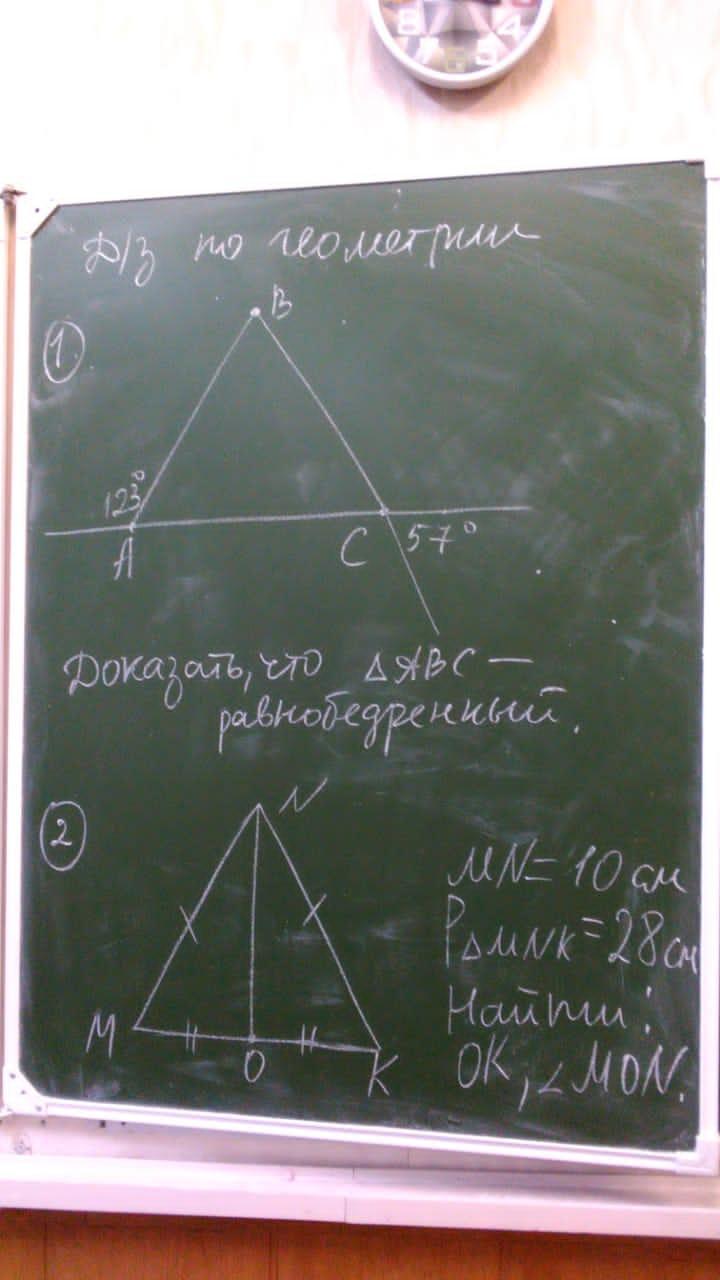 Д/з по геометрии
1.
B
123°
A
C
57°
Доказать, что △ABC —
равнобедренный.
2
N
M
O
K
MN = 10 см
P△MNK = 28 см
Найти:
OK, ∠MON.
8
4
7
6
5